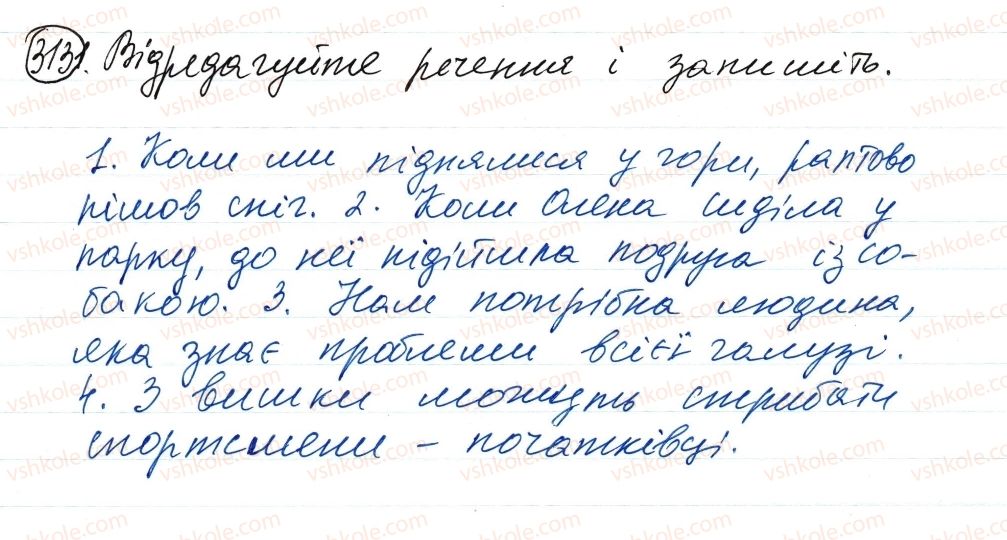 313. Відредагуйте речення і запишіть.
1. Коли ми піднялися у гори, раптово
пішов сніг. 2. Коли Олена сиділа у
парку, до неї підійшла подруга із со-
бакою. 3. Нам потрібна людина,
яка знає проблеми всієї галузі.
4. З вишки можуть стрибати
спортсмени – початківці.